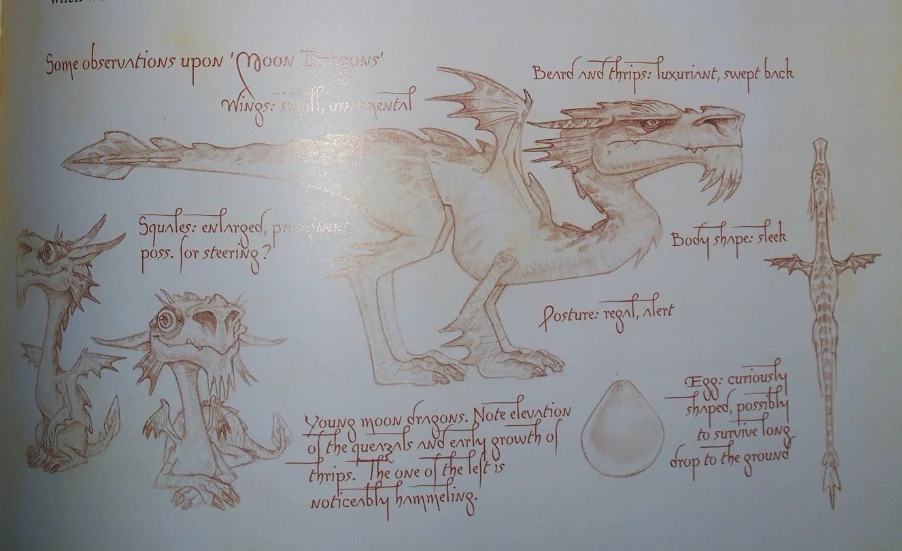 Some observations upon 'Moon Dragons'
Beard and thrips: luxuriant, swept back
Wings: small, ornamental
Squales: enlarged, prominent
poss. for steering?
Body shape: sleek
Posture: regal, alert
Egg: curiously
shaped, possibly
to survive long
drop to the ground
Young moon dragons. Note elevation
of the quezals and early growth of
thrips. The one of the left is
noticeably hammeling.